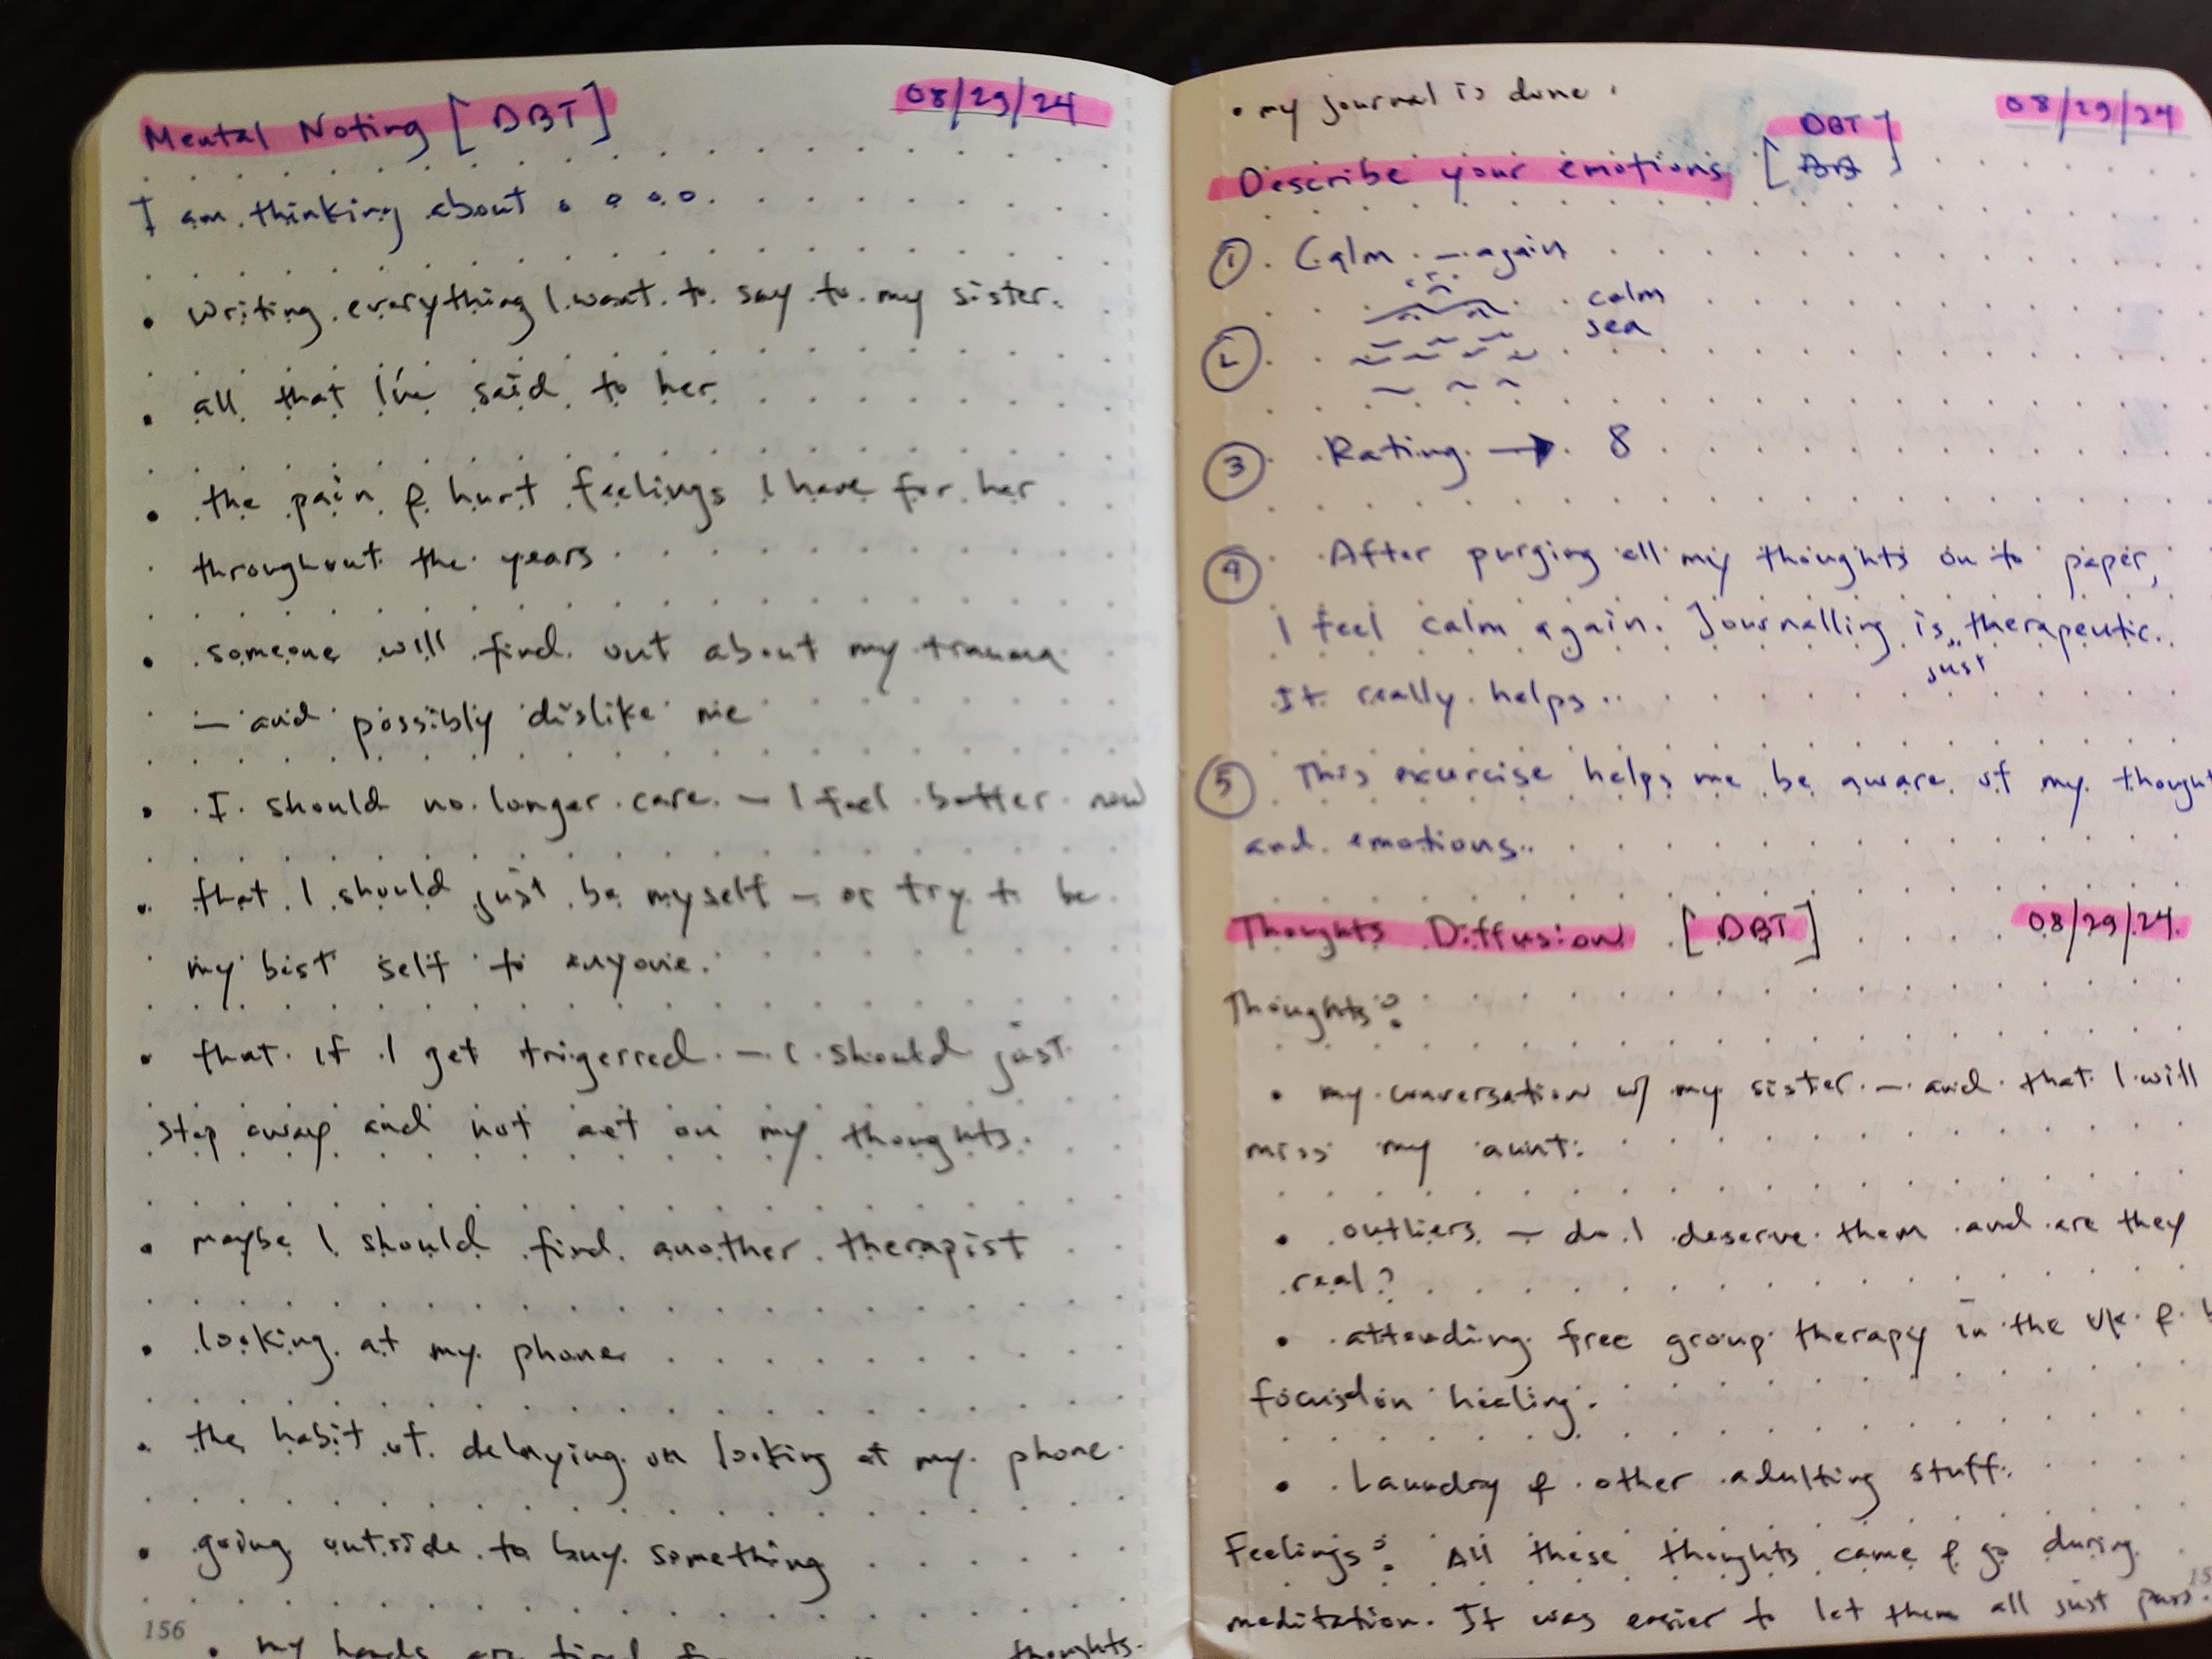 Mental Noting [DBT] 08/29/24
I am thinking about . . . .
• writing everything I want to say to my sister.
• all that I've said to her
• the pain & hurt feelings I have for her
throughout the years
• someone will find out about my trauma
— and possibly dislike me
• I should no longer care — I feel better now
• that I should just be myself — or try to be
my best self to anyone.
• that if I get trigerred — I should just
step away and not act on my thoughts.
• maybe I should find another therapist
• looking at my phone
• the habit of delaying on looking at my phone
• going outside to buy something
156
• my hands are tired thoughts.
• my journal is done.
08/29/24
Describe your emotions [DBT]
① Calm — again
② calm
sea
③ Rating → 8
④ After purging all my thoughts on to paper,
I feel calm again. Journalling is just therapeutic.
It really helps..
⑤ This excercise helps me be aware of my
and emotions..
Thoughts Diffusion [DBT] 08/29/24
Thoughts:
• my conversation w/ my sister — and that I will
miss my aunt.
• outliers — do I deserve them and are they
real?
• attending free group therapy in the UK &
focused on healing.
• Laundry & other adulting stuff.
Feelings: All these thoughts came & go during
meditation. It was easier to let them all just pass.